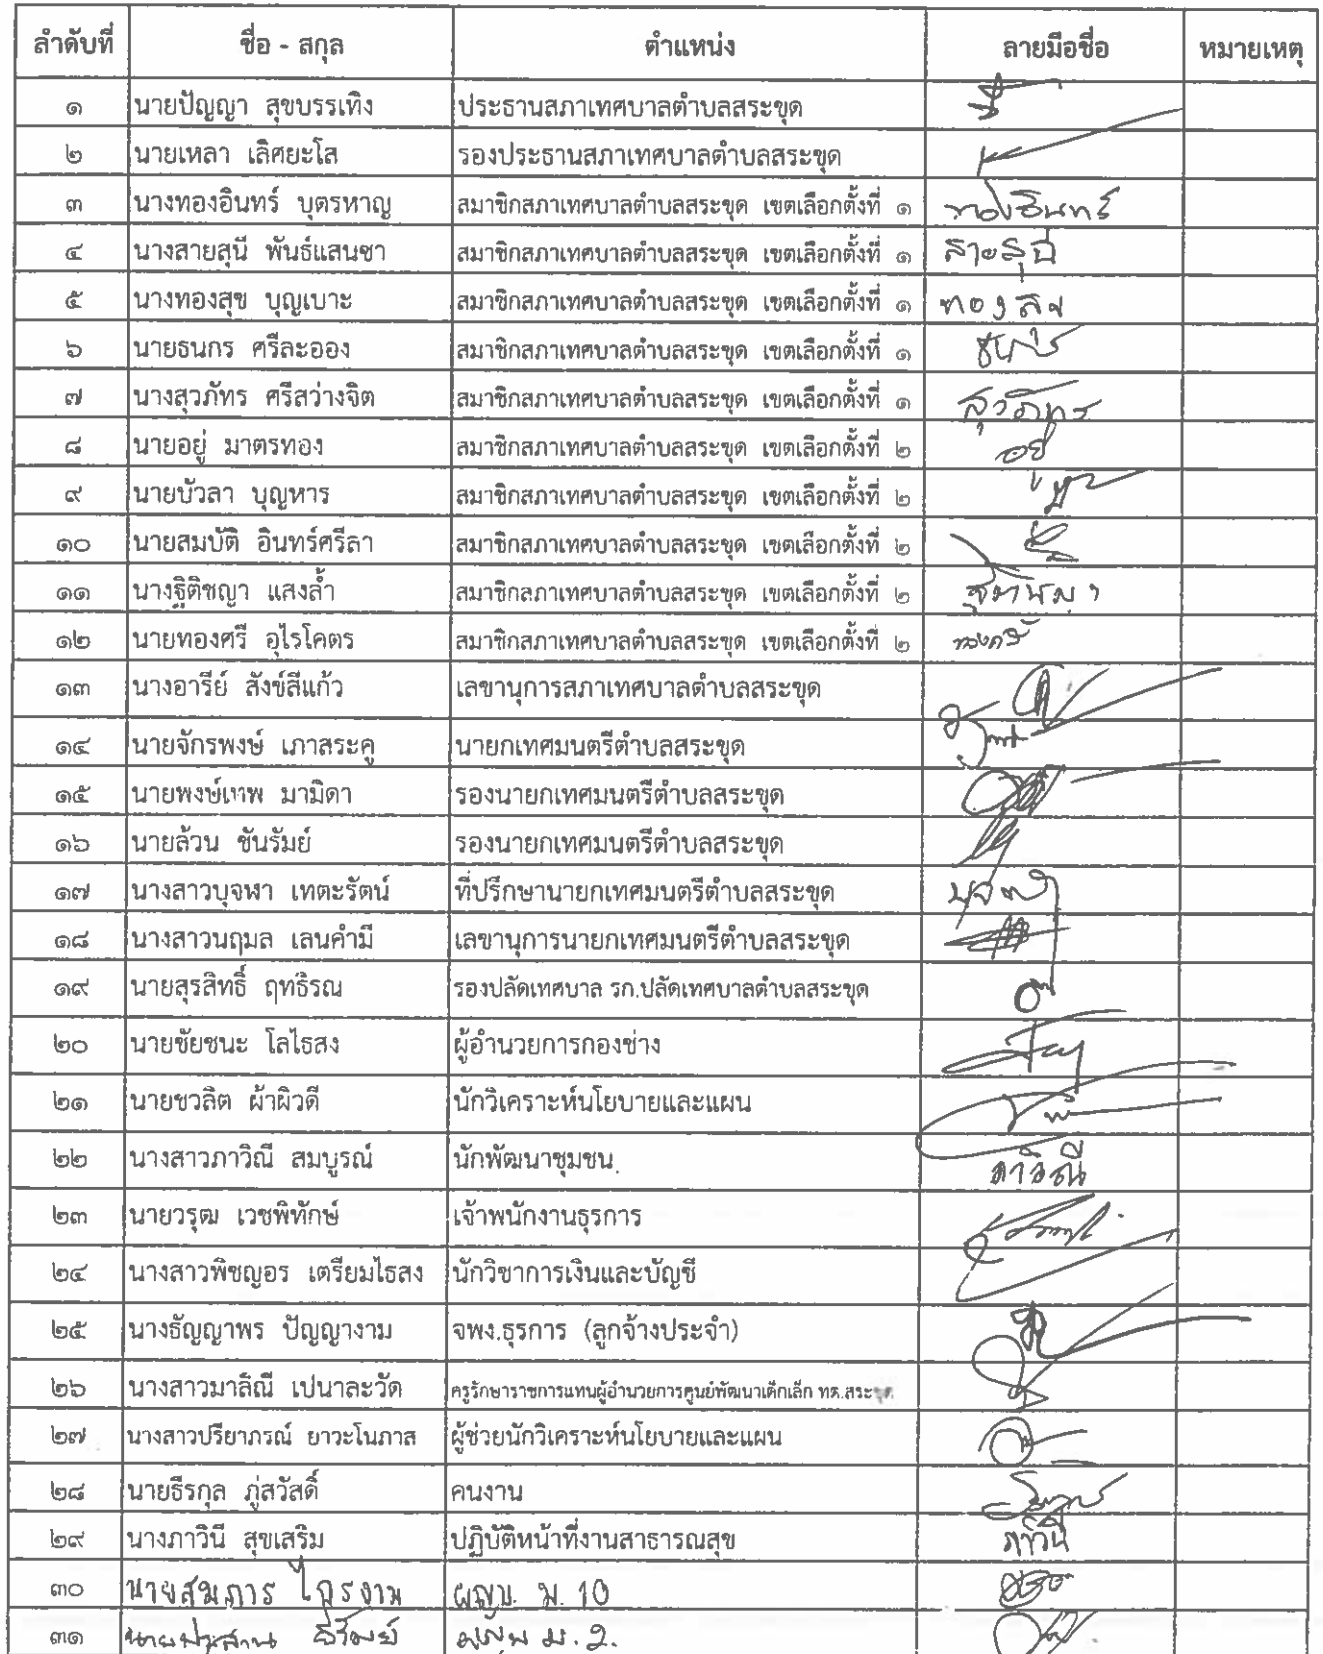 ลำดับที่ ชื่อ - สกุล ตำแหน่ง ลายมือชื่อ หมายเหตุ
๑ นายปัญญา สุขบรรเทิง ประธานสภาเทศบาลตำบลสระขุด
๒ นายเหลา เลิศยะโส รองประธานสภาเทศบาลตำบลสระขุด
๓ นางทองอินทร์ บุตรหาญ สมาชิกสภาเทศบาลตำบลสระขุด เขตเลือกตั้งที่ ๑ ทองอินทร์
๔ นางสายสุนี พันธ์แสนซา สมาชิกสภาเทศบาลตำบลสระขุด เขตเลือกตั้งที่ ๑ สายสุนี
๕ นางทองสุข บุญเบาะ สมาชิกสภาเทศบาลตำบลสระขุด เขตเลือกตั้งที่ ๑
๖ นายธนกร ศรีละออง สมาชิกสภาเทศบาลตำบลสระขุด เขตเลือกตั้งที่ ๑
๗ นางสุวภัทร ศรีสว่างจิต สมาชิกสภาเทศบาลตำบลสระขุด เขตเลือกตั้งที่ ๑ สุวภัทร
๘ นายอยู่ มาตรทอง สมาชิกสภาเทศบาลตำบลสระขุด เขตเลือกตั้งที่ ๒ อยู่
๙ นายบัวลา บุญหาร สมาชิกสภาเทศบาลตำบลสระขุด เขตเลือกตั้งที่ ๒
๑๐ นายสมบัติ อินทร์ศรีลา สมาชิกสภาเทศบาลตำบลสระขุด เขตเลือกตั้งที่ ๒
๑๑ นางฐิติชญา แสงล้ำ สมาชิกสภาเทศบาลตำบลสระขุด เขตเลือกตั้งที่ ๒
๑๒ นายทองศรี อุไรโคตร สมาชิกสภาเทศบาลตำบลสระขุด เขตเลือกตั้งที่ ๒
๑๓ นางอารีย์ สังข์สีแก้ว เลขานุการสภาเทศบาลตำบลสระขุด
๑๔ นายจักรพงษ์ เภาสระคู นายกเทศมนตรีตำบลสระขุด
๑๕ นายพงษ์เทพ มามิดา รองนายกเทศมนตรีตำบลสระขุด
๑๖ นายล้วน ชันรัมย์ รองนายกเทศมนตรีตำบลสระขุด
๑๗ นางสาวบุจฬา เทตะรัตน์ ที่ปรึกษานายกเทศมนตรีตำบลสระขุด
๑๘ นางสาวนฤมล เลนคำมี เลขานุการนายกเทศมนตรีตำบลสระขุด
๑๙ นายสุรสิทธิ์ ฤทธิรณ รองปลัดเทศบาล รก.ปลัดเทศบาลตำบลสระขุด
๒๐ นายชัยชนะ โลไธสง ผู้อำนวยการกองช่าง
๒๑ นายชวลิต ผ้าผิวดี นักวิเคราะห์นโยบายและแผน
๒๒ นางสาวภาวิณี สมบูรณ์ นักพัฒนาชุมชน ภาวิณี
๒๓ นายวรุฒ เวชพิทักษ์ เจ้าพนักงานธุรการ
๒๔ นางสาวพิชญอร เตรียมไธสง นักวิชาการเงินและบัญชี
๒๕ นางธัญญาพร ปัญญางาม จพง.ธุรการ (ลูกจ้างประจำ)
๒๖ นางสาวมาลิณี เปนาละวัด ครูรักษาราชการแทนผู้อำนวยการศูนย์พัฒนาเด็กเล็ก ทต.สระขุด
๒๗ นางสาวปรียาภรณ์ ยาวะโนภาส ผู้ช่วยนักวิเคราะห์นโยบายและแผน
๒๘ นายธีรกุล ภู่สวัสดิ์ คนงาน
๒๙ นางภาวินี สุขเสริม ปฏิบัติหน้าที่งานสาธารณสุข ภาวินี
๓๐ นายสมภาร ไกรงาม ผญบ. ม. 10
๓๑ นายประสาน ม. 2.